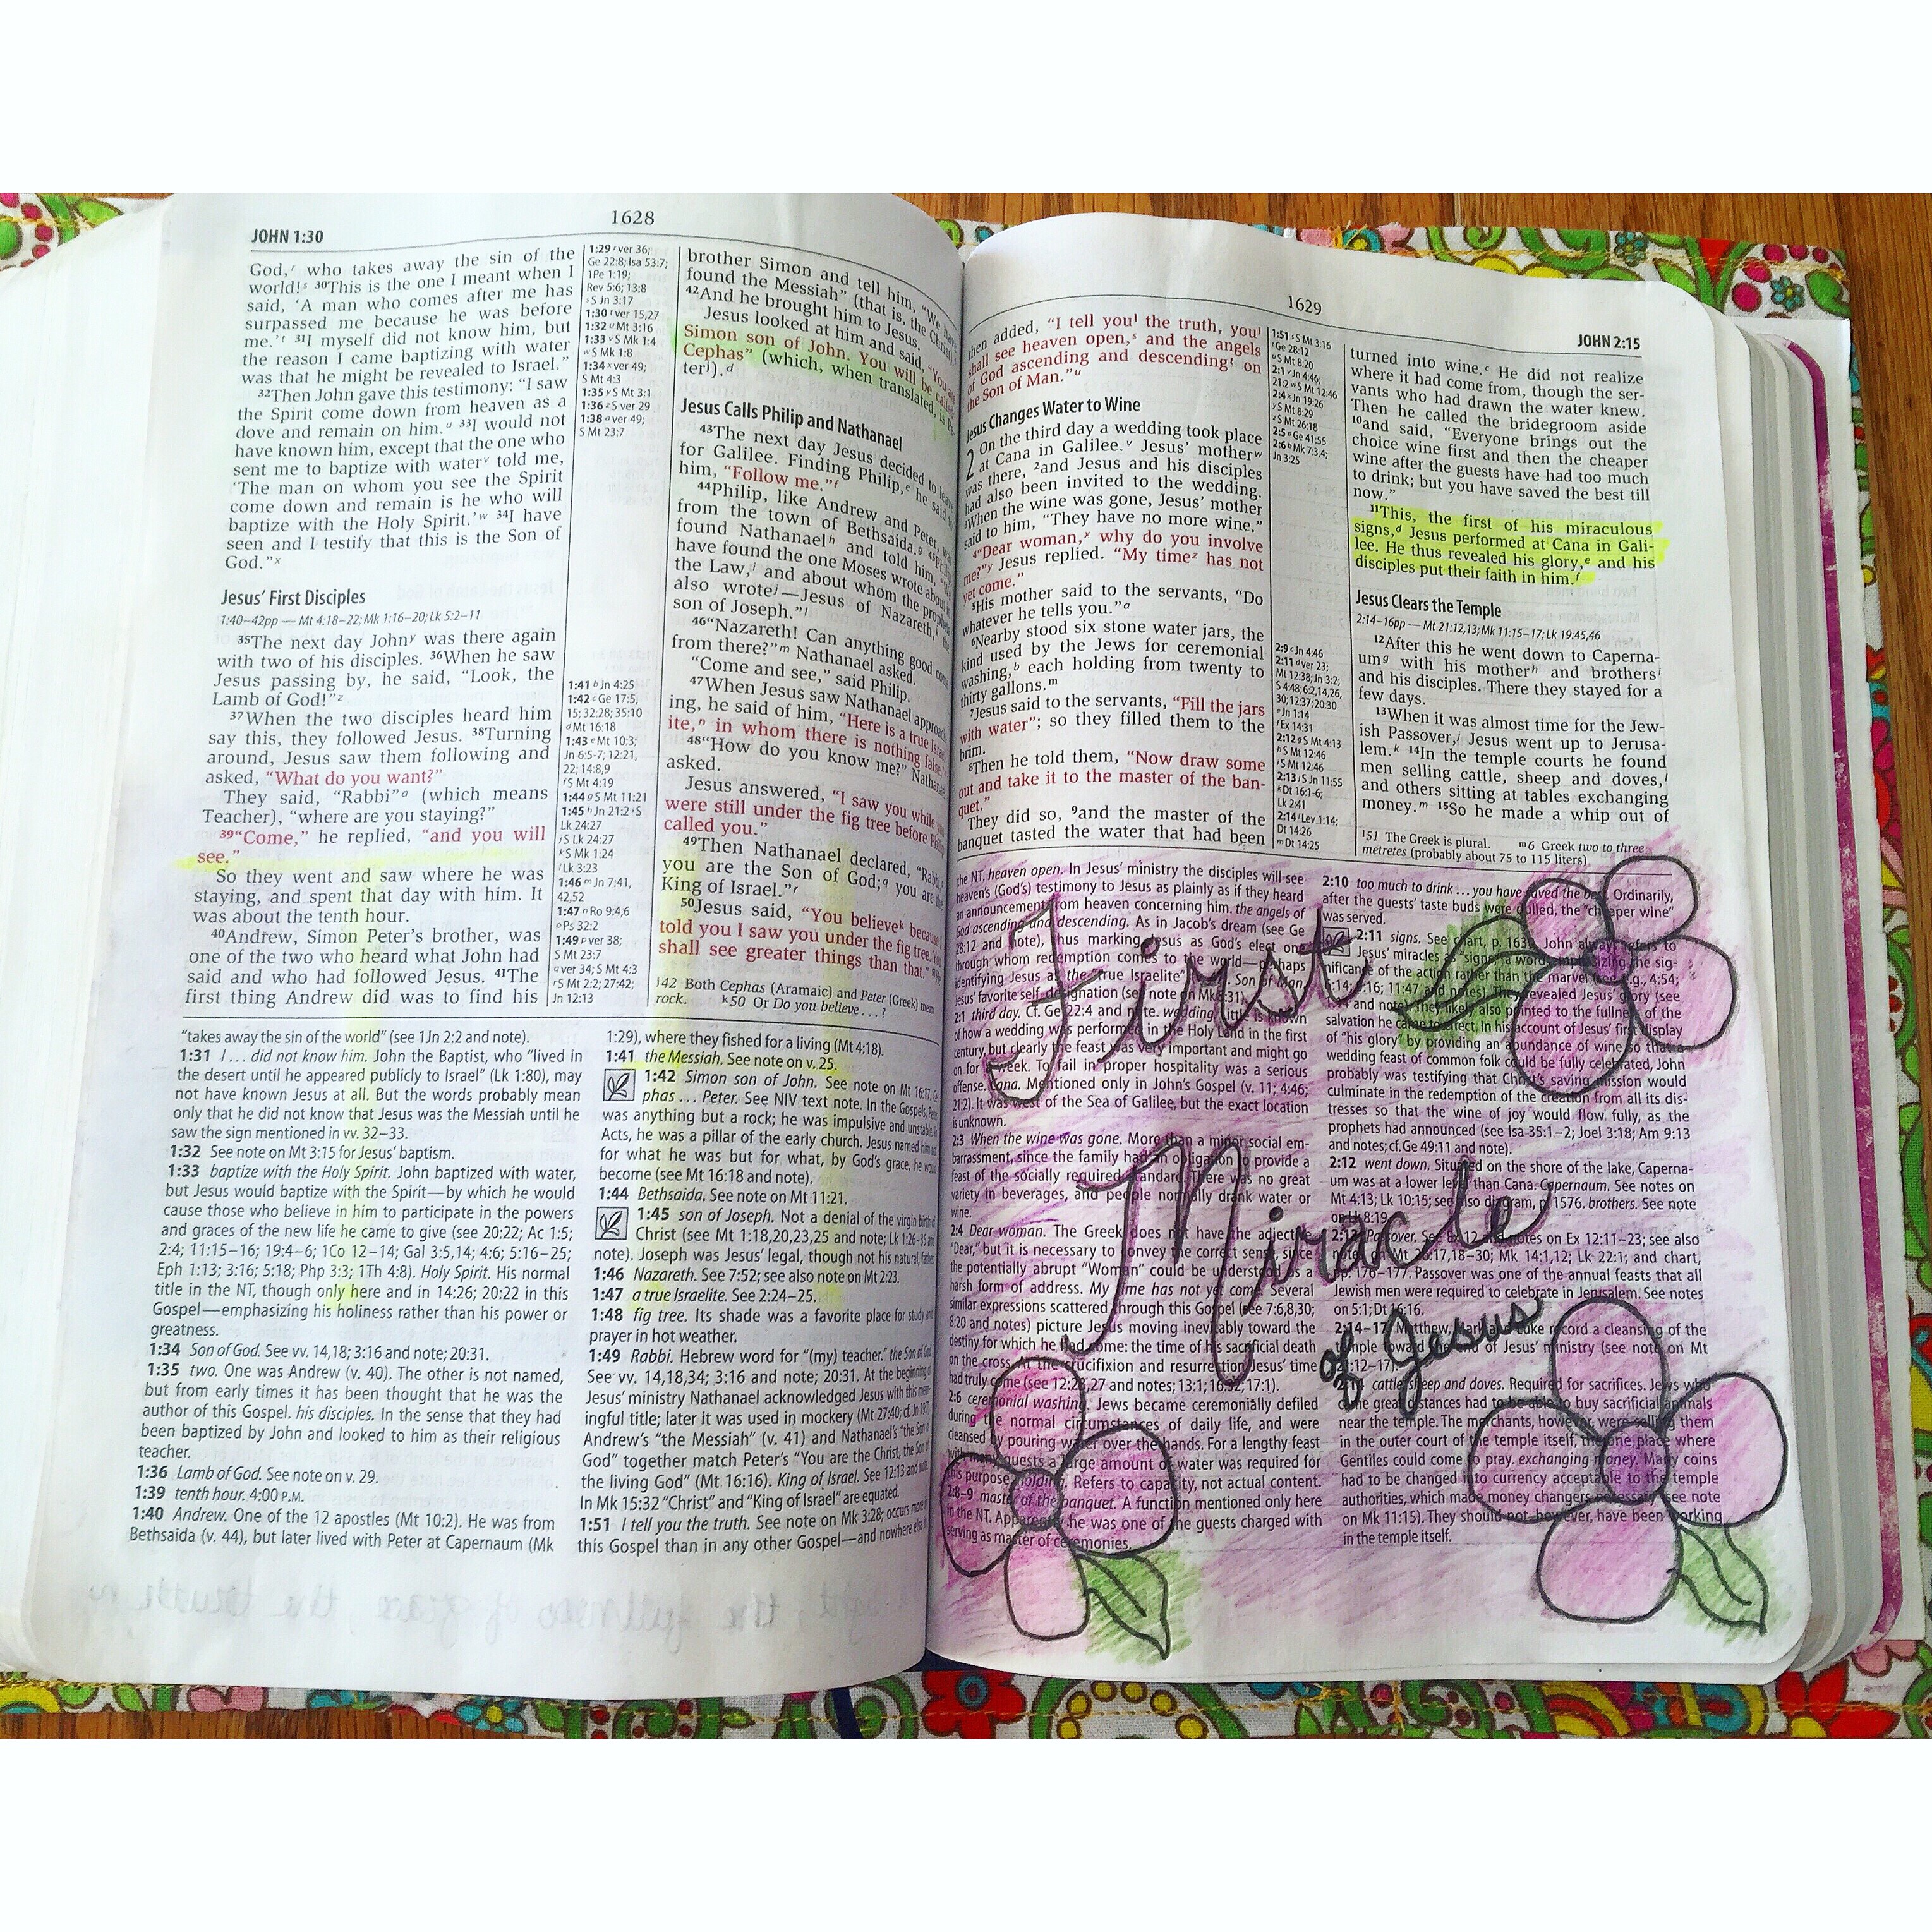 1628
JOHN 1:30
God,ʳ who takes away the sin of the
world!ˢ ³⁰This is the one I meant when I
said, ‘A man who comes after me has
surpassed me because he was before
me.’ᵗ ³¹I myself did not know him, but
the reason I came baptizing with water
was that he might be revealed to Israel.”
³²Then John gave this testimony: “I saw
the Spirit come down from heaven as a
dove and remain on him.ᵘ ³³I would not
have known him, except that the one who
sent me to baptize with waterᵛ told me,
‘The man on whom you see the Spirit
come down and remain is he who will
baptize with the Holy Spirit.’ʷ ³⁴I have
seen and I testify that this is the Son of
God.”ˣ
Jesus’ First Disciples
1:40–42pp — Mt 4:18–22; Mk 1:16–20; Lk 5:2–11
³⁵The next day Johnʸ was there again
with two of his disciples. ³⁶When he saw
Jesus passing by, he said, “Look, the
Lamb of God!”ᶻ
³⁷When the two disciples heard him
say this, they followed Jesus. ³⁸Turning
around, Jesus saw them following and
asked, “What do you want?”
They said, “Rabbi”ᵃ (which means
Teacher), “where are you staying?”
³⁹“Come,” he replied, “and you will
see.”
So they went and saw where he was
staying, and spent that day with him. It
was about the tenth hour.
⁴⁰Andrew, Simon Peter’s brother, was
one of the two who heard what John had
said and who had followed Jesus. ⁴¹The
first thing Andrew did was to find his
1:29 ʳ ver 36;
Ge 22:8; Isa 53:7;
1Pe 1:19;
Rev 5:6; 13:8
ˢ S Jn 3:17
1:30 ᵗ ver 15,27
1:32 ᵘ Mt 3:16
1:33 ᵛ S Mk 1:4
ʷ S Mk 1:8
1:34 ˣ ver 49;
S Mt 4:3
1:35 ʸ S Mt 3:1
1:36 ᶻ S ver 29
1:38 ᵃ ver 49;
S Mt 23:7
1:41 ᵇ Jn 4:25
1:42 ᶜ Ge 17:5,
15; 32:28; 35:10
ᵈ Mt 16:18
1:43 ᵉ Mt 10:3;
Jn 6:5-7; 12:21,
22; 14:8,9
ᶠ S Mt 4:19
1:44 ᵍ S Mt 11:21
1:45 ʰ Jn 21:2 ⁱ S
Lk 24:27
ʲ S Lk 24:27
ᵏ S Mk 1:24
ˡ Lk 3:23
1:46 ᵐ Jn 7:41,
42,52
1:47 ⁿ Ro 9:4,6
ᵒ Ps 32:2
1:49 ᵖ ver 38;
S Mt 23:7
q ver 34; S Mt 4:3
ʳ S Mt 2:2; 27:42;
Jn 12:13
brother Simon and tell him, “We have
found the Messiah” (that is, the Christ).
⁴²And he brought him to Jesus.
Jesus looked at him and said, “You are
Simon son of John. You will be called
Cephas” (which, when translated, is Pe-
terʲ).ᵈ
Jesus Calls Philip and Nathanael
⁴³The next day Jesus decided to leave
for Galilee. Finding Philip,ᵉ he said to
him, “Follow me.”ᶠ
⁴⁴Philip, like Andrew and Peter, was
from the town of Bethsaida.ᵍ ⁴⁵Philip
found Nathanaelʰ and told him, “We
have found the one Moses wrote about in
the Law,ⁱ and about whom the prophets
also wroteʲ—Jesus of Nazareth,ᵏ the
son of Joseph.”ˡ
⁴⁶“Nazareth! Can anything good come
from there?”ᵐ Nathanael asked.
“Come and see,” said Philip.
⁴⁷When Jesus saw Nathanael approach-
ing, he said of him, “Here is a true Israel-
ite,ⁿ in whom there is nothing false.”
⁴⁸“How do you know me?” Nathanael
asked.
Jesus answered, “I saw you while you
were still under the fig tree before Philip
called you.”
⁴⁹Then Nathanael declared, “Rabbi,
you are the Son of God;q you are the
King of Israel.”ʳ
⁵⁰Jesus said, “You believeᵏ because I
told you I saw you under the fig tree. You
shall see greater things than that.”
ʲ42 Both Cephas (Aramaic) and Peter (Greek) mean
rock. ᵏ50 Or Do you believe . . . ?
“takes away the sin of the world” (see 1Jn 2:2 and note).
1:31 I . . . did not know him. John the Baptist, who “lived in
the desert until he appeared publicly to Israel” (Lk 1:80), may
not have known Jesus at all. But the words probably mean
only that he did not know that Jesus was the Messiah until he
saw the sign mentioned in vv. 32–33.
1:32 See note on Mt 3:15 for Jesus’ baptism.
1:33 baptize with the Holy Spirit. John baptized with water,
but Jesus would baptize with the Spirit—by which he would
cause those who believe in him to participate in the powers
and graces of the new life he came to give (see 20:22; Ac 1:5;
2:4; 11:15–16; 19:4–6; 1Co 12–14; Gal 3:5,14; 4:6; 5:16–25;
Eph 1:13; 3:16; 5:18; Php 3:3; 1Th 4:8). Holy Spirit. His normal
title in the NT, though only here and in 14:26; 20:22 in this
Gospel—emphasizing his holiness rather than his power or
greatness.
1:34 Son of God. See vv. 14,18; 3:16 and note; 20:31.
1:35 two. One was Andrew (v. 40). The other is not named,
but from early times it has been thought that he was the
author of this Gospel. his disciples. In the sense that they had
been baptized by John and looked to him as their religious
teacher.
1:36 Lamb of God. See note on v. 29.
1:39 tenth hour. 4:00 P.M.
1:40 Andrew. One of the 12 apostles (Mt 10:2). He was from
Bethsaida (v. 44), but later lived with Peter at Capernaum (Mk
1:29), where they fished for a living (Mt 4:18).
1:41 the Messiah. See note on v. 25.
1:42 Simon son of John. See note on Mt 16:17. Ce-
phas . . . Peter. See NIV text note. In the Gospels, Peter
was anything but a rock; he was impulsive and unstable. In
Acts, he was a pillar of the early church. Jesus named him not
for what he was but for what, by God’s grace, he would
become (see Mt 16:18 and note).
1:44 Bethsaida. See note on Mt 11:21.
1:45 son of Joseph. Not a denial of the virgin birth of
Christ (see Mt 1:18,20,23,25 and note; Lk 1:26–35 and
note). Joseph was Jesus’ legal, though not his natural, father.
1:46 Nazareth. See 7:52; see also note on Mt 2:23.
1:47 a true Israelite. See 2:24–25.
1:48 fig tree. Its shade was a favorite place for study and
prayer in hot weather.
1:49 Rabbi. Hebrew word for “(my) teacher.” the Son of God.
See vv. 14,18,34; 3:16 and note; 20:31. At the beginning of
Jesus’ ministry Nathanael acknowledged Jesus with this mean-
ingful title; later it was used in mockery (Mt 27:40; cf. Jn 19:7).
Andrew’s “the Messiah” (v. 41) and Nathanael’s “the Son of
God” together match Peter’s “You are the Christ, the Son of
the living God” (Mt 16:16). King of Israel. See 12:13 and note.
In Mk 15:32 “Christ” and “King of Israel” are equated.
1:51 I tell you the truth. See note on Mk 3:28; occurs more in
this Gospel than in any other Gospel—and nowhere else
1629
JOHN 2:15
then added, “I tell youˡ the truth, youˡ
shall see heaven open,ˢ and the angels
of God ascending and descendingᵗ on
the Son of Man.”ᵘ
Jesus Changes Water to Wine
2 On the third day a wedding took place
at Cana in Galilee.ᵛ Jesus’ motherʷ
was there, ²and Jesus and his disciples
had also been invited to the wedding.
³When the wine was gone, Jesus’ mother
said to him, “They have no more wine.”
⁴“Dear woman,ˣ why do you involve
me?”ʸ Jesus replied. “My timeᶻ has not
yet come.”
⁵His mother said to the servants, “Do
whatever he tells you.”ᵃ
⁶Nearby stood six stone water jars, the
kind used by the Jews for ceremonial
washing,ᵇ each holding from twenty to
thirty gallons.ᵐ
⁷Jesus said to the servants, “Fill the jars
with water”; so they filled them to the
brim.
⁸Then he told them, “Now draw some
out and take it to the master of the ban-
quet.”
They did so, ⁹and the master of the
banquet tasted the water that had been
1:51 ˢ S Mt 3:16
ᵗ Ge 28:12
ᵘ S Mt 8:20
2:1 ᵛ Jn 4:46;
21:2 ʷ S Mt 12:46
2:4 ˣ Jn 19:26
ʸ S Mt 8:29
ᶻ S Mt 26:18
2:5 ᵃ Ge 41:55
2:6 ᵇ Mk 7:3,4;
Jn 3:25
2:9 ᶜ Jn 4:46
2:11 ᵈ ver 23;
Mt 12:38; Jn 3:2;
S 4:48; 6:2,14,26,
30; 12:37; 20:30
ᵉ Jn 1:14
ᶠ Ex 14:31
2:12 ᵍ S Mt 4:13
ʰ S Mt 12:46
ⁱ S Mt 12:46
2:13 ʲ S Jn 11:55
ᵏ Dt 16:1-6;
Lk 2:41
2:14 ˡ Lev 1:14;
Dt 14:26
ᵐ Dt 14:25
turned into wine.ᶜ He did not realize
where it had come from, though the ser-
vants who had drawn the water knew.
Then he called the bridegroom aside
¹⁰and said, “Everyone brings out the
choice wine first and then the cheaper
wine after the guests have had too much
to drink; but you have saved the best till
now.”
¹¹This, the first of his miraculous
signs,ᵈ Jesus performed at Cana in Gali-
lee. He thus revealed his glory,ᵉ and his
disciples put their faith in him.ᶠ
Jesus Clears the Temple
2:14–16pp — Mt 21:12,13; Mk 11:15–17; Lk 19:45,46
¹²After this he went down to Caperna-
umᵍ with his motherʰ and brothersⁱ
and his disciples. There they stayed for a
few days.
¹³When it was almost time for the Jew-
ish Passover,ʲ Jesus went up to Jerusa-
lem.ᵏ ¹⁴In the temple courts he found
men selling cattle, sheep and doves,ˡ
and others sitting at tables exchanging
money.ᵐ ¹⁵So he made a whip out of
ˡ51 The Greek is plural. ᵐ6 Greek two to three
metretes (probably about 75 to 115 liters)
the NT. heaven open. In Jesus’ ministry the disciples will see
heaven’s (God’s) testimony to Jesus as plainly as if they heard
an announcement from heaven concerning him. the angels of
God ascending and descending. As in Jacob’s dream (see Ge
28:12 and note), thus marking Jesus as God’s elect one
through whom redemption comes to the world—perhaps
identifying Jesus as the true Israelite. Son of Man.
Jesus’ favorite self-designation (see note on Mk 8:31).
2:1 third day. Cf. Ge 22:4 and note. wedding. Little is known
of how a wedding was performed in the Holy Land in the first
century, but clearly the feast was very important and might go
on for a week. To fail in proper hospitality was a serious
offense. Cana. Mentioned only in John’s Gospel (v. 11; 4:46;
21:2). It was west of the Sea of Galilee, but the exact location
is unknown.
2:3 When the wine was gone. More than a minor social em-
barrassment, since the family had an obligation to provide a
feast of the socially required standard. There was no great
variety in beverages, and people normally drank water or
wine.
2:4 Dear woman. The Greek does not have the adjective
“Dear,” but it is necessary to convey the correct sense, since
the potentially abrupt “Woman” could be understood as a
harsh form of address. My time has not yet come. Several
similar expressions scattered through this Gospel (see 7:6,8,30;
8:20 and notes) picture Jesus moving inevitably toward the
destiny for which he had come: the time of his sacrificial death
on the cross. At the crucifixion and resurrection Jesus’ time
had truly come (see 12:23,27 and notes; 13:1; 16:32; 17:1).
2:6 ceremonial washing. Jews became ceremonially defiled
during the normal circumstances of daily life, and were
cleansed by pouring water over the hands. For a lengthy feast
with many guests a large amount of water was required for
this purpose. holding. Refers to capacity, not actual content.
2:8–9 master of the banquet. A function mentioned only here
in the NT. Apparently he was one of the guests charged with
serving as master of ceremonies.
2:10 too much to drink . . . you have saved the best. Ordinarily,
after the guests’ taste buds were dulled, the “cheaper wine”
was served.
2:11 signs. See chart, p. 163 John always refers to
Jesus’ miracles as “signs,” a word emphasizing the sig-
nificance of the action rather than the marvel (see, e.g., 4:54;
6:14; 9:16; 11:47 and notes). They revealed Jesus’ glory (see
1:14 and note). They likely also pointed to the fullness of the
salvation he came to effect. In his account of Jesus’ first display
of “his glory” by providing an abundance of wine so that a
wedding feast of common folk could be fully celebrated, John
probably was testifying that Christ’s saving mission would
culminate in the redemption of the creation from all its dis-
tresses so that the wine of joy would flow fully, as the
prophets had announced (see Isa 35:1–2; Joel 3:18; Am 9:13
and notes; cf. Ge 49:11 and note).
2:12 went down. Situated on the shore of the lake, Caperna-
um was at a lower level than Cana. Capernaum. See notes on
Mt 4:13; Lk 10:15; see also diagram, p. 1576. brothers. See note
on Lk 8:19.
2:13 Passover. See Ex 12 and notes on Ex 12:11–23; see also
notes on Mt 26:17,18–30; Mk 14:1,12; Lk 22:1; and chart,
pp. 176–177. Passover was one of the annual feasts that all
Jewish men were required to celebrate in Jerusalem. See notes
on 5:1; Dt 16:16.
2:14–17 Matthew, Mark and Luke record a cleansing of the
temple toward the end of Jesus’ ministry (see note on Mt
21:12–17).
cattle, sheep and doves. Required for sacrifices. Jews who
came great distances had to be able to buy sacrificial animals
near the temple. The merchants, however, were selling them
in the outer court of the temple itself, the one place where
Gentiles could come to pray. exchanging money. Many coins
had to be changed into currency acceptable to the temple
authorities, which made money changers necessary (see note
on Mk 11:15). They should not, however, have been working
in the temple itself.
First
Miracle
of Jesus